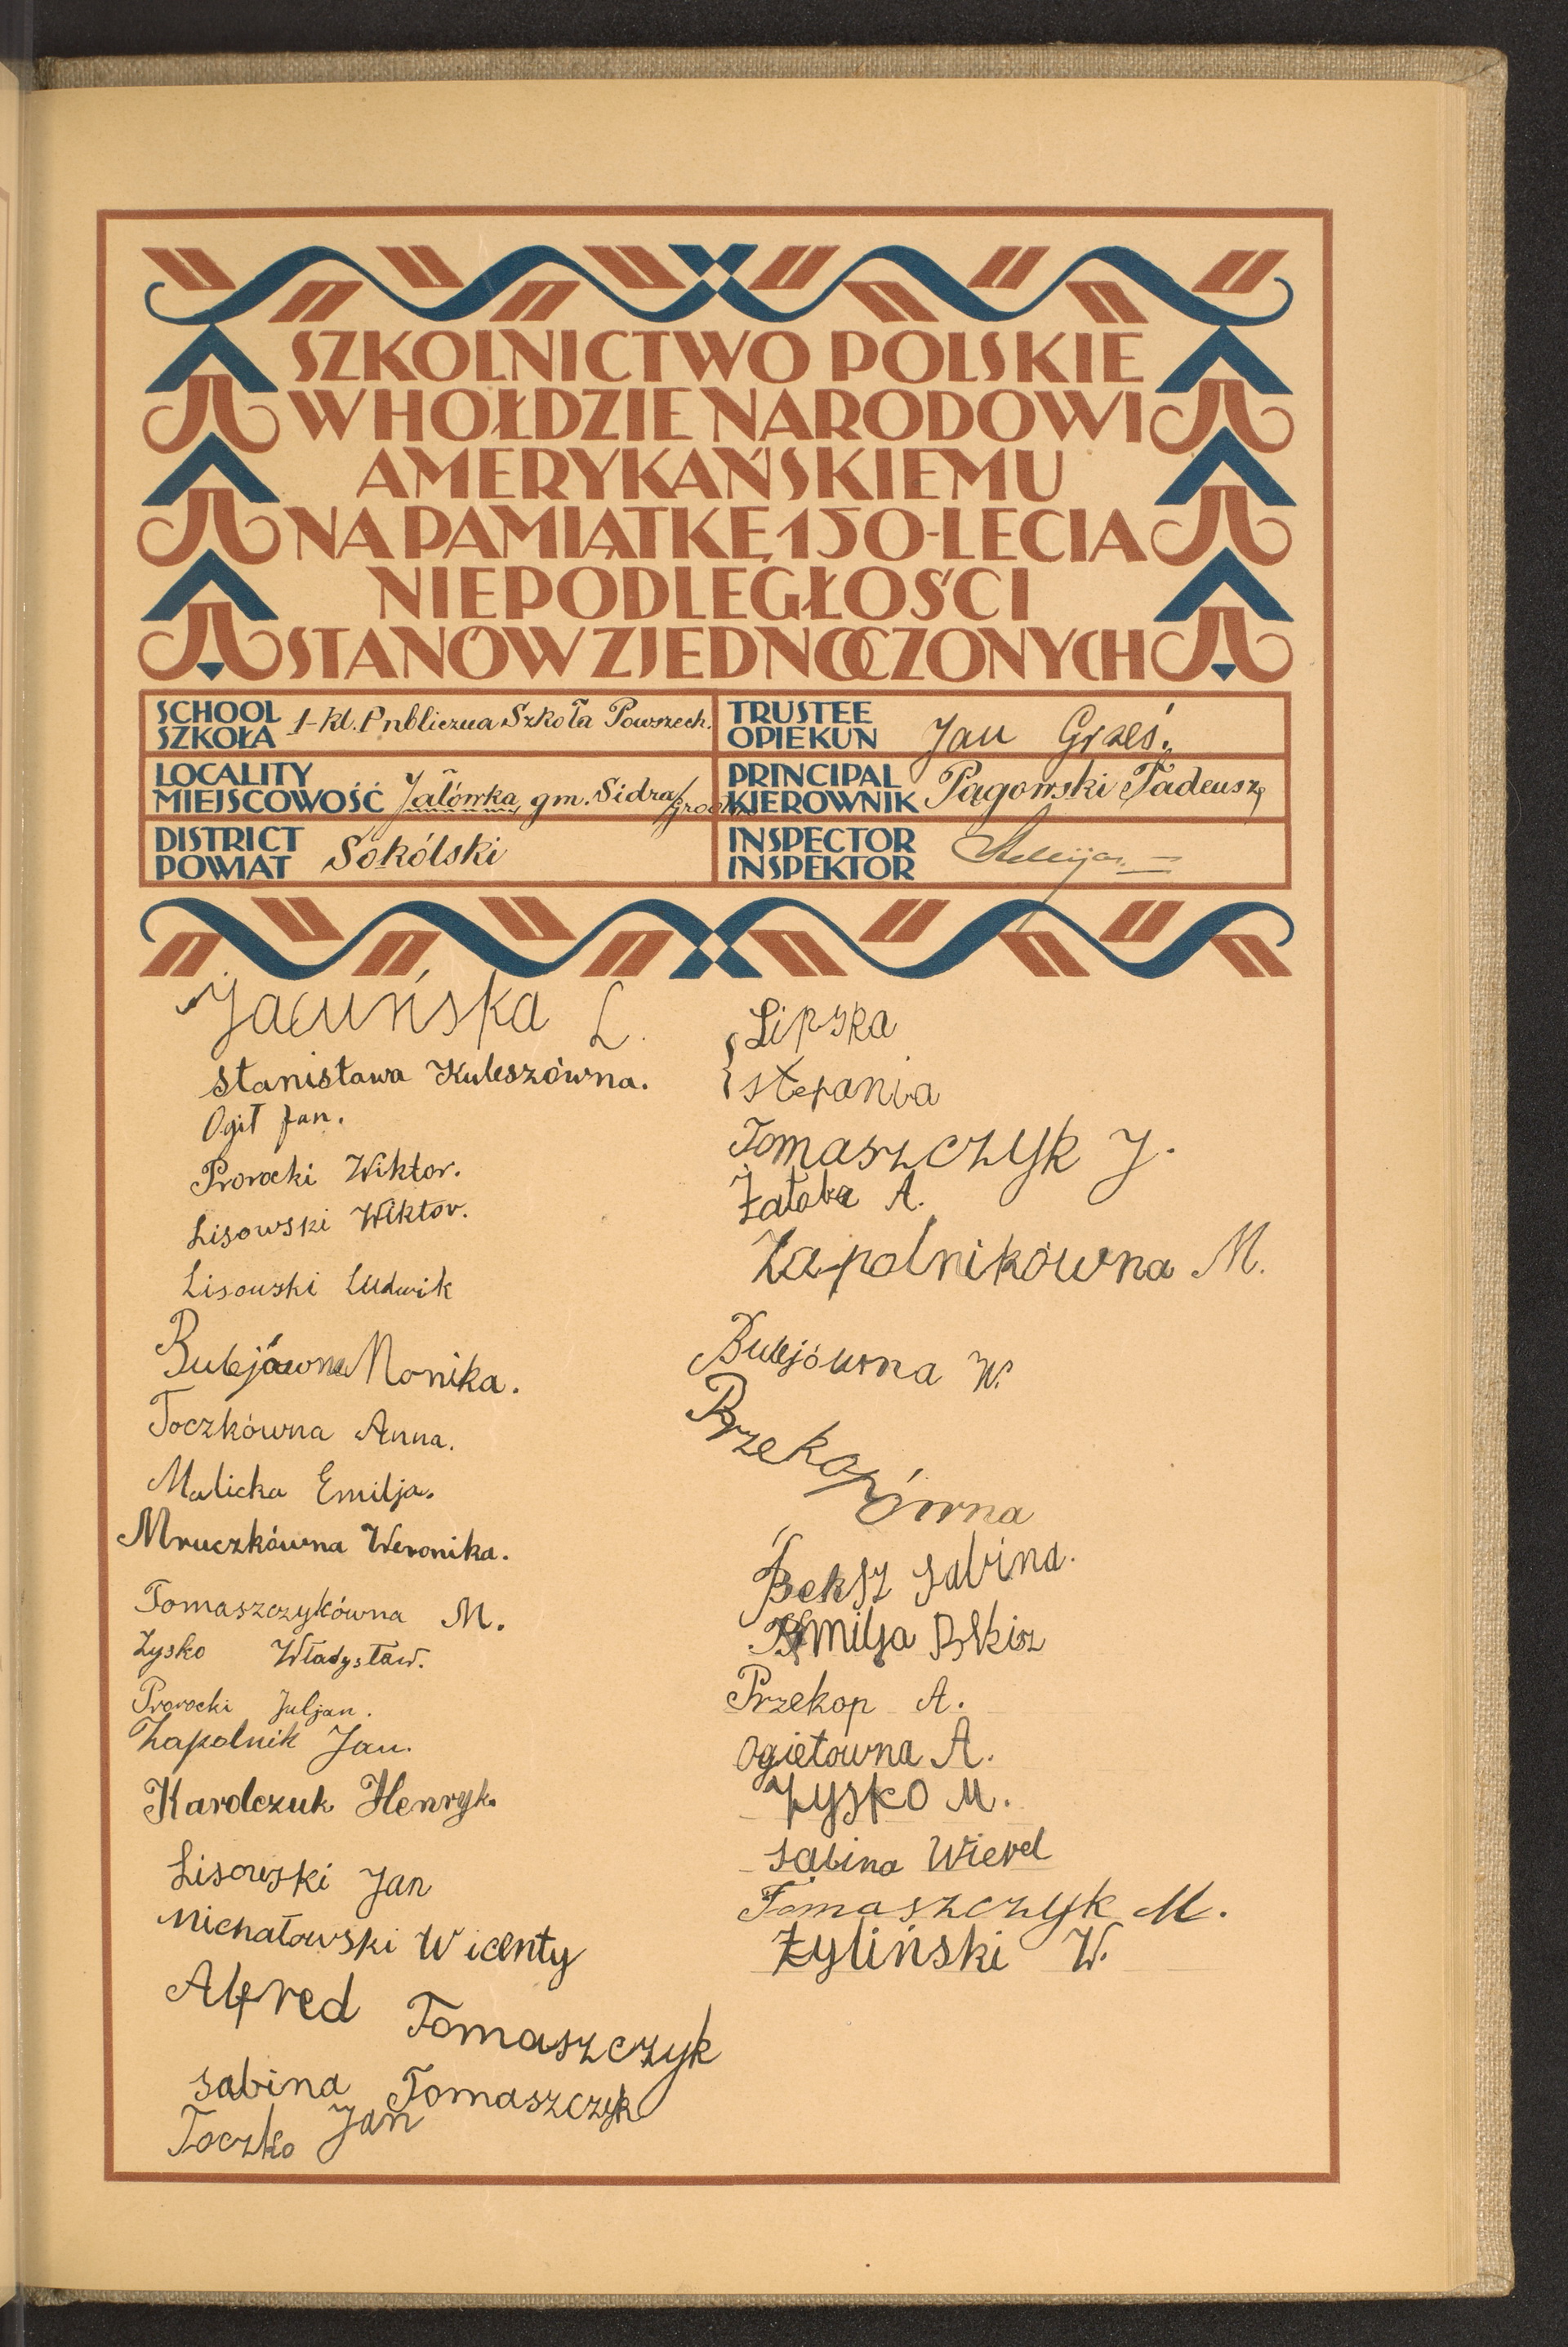 SZKOLNICTWO POLSKIE
W HOŁDZIE NARODOWI
AMERYKAŃSKIEMU
NA PAMIĄTKĘ 150-LECIA
NIEPODLEGŁOŚCI
STANÓW ZJEDNOCZONYCH
SCHOOL
SZKOŁA
1-kl. Publiczna Szkoła Powszech.
TRUSTEE
OPIEKUN
Jan Grześ.
LOCALITY
MIEJSCOWOŚĆ
Jałówka, gm. Sidra
PRINCIPAL
KIEROWNIK
Pagowski Tadeusz
DISTRICT
POWIAT
Sokólski
INSPECTOR
INSPEKTOR
Jacuńska L.
Stanisława Kuleszówna.
Ogił Jan.
Prorocki Wiktor.
Lisowski Wiktor.
Lisowski Ludwik
Bulejówna Monika.
Toczkówna Anna.
Malicka Emilja.
Mruczkówna Weronika.
Tomaszczykówna M.
Zysko Władysław.
Prorocki Juljan.
Zapolnik Jan.
Karolczuk Henryk.
Lisowski Jan
Michałowski Wicenty
Alfred Tomaszczyk
Sabina Tomaszczyk
Toczko Jan
Lipska
Stefania
Tomaszczyk J.
Żałoba A.
Zapolnikówna M.
Bulejówna W.
Przekopówna
Beksz Sabina.
Emilja
Przekop A.
Ogiełowna A.
Zysko M.
Sabina Wierel
Tomaszczyk M.
Żyliński W.